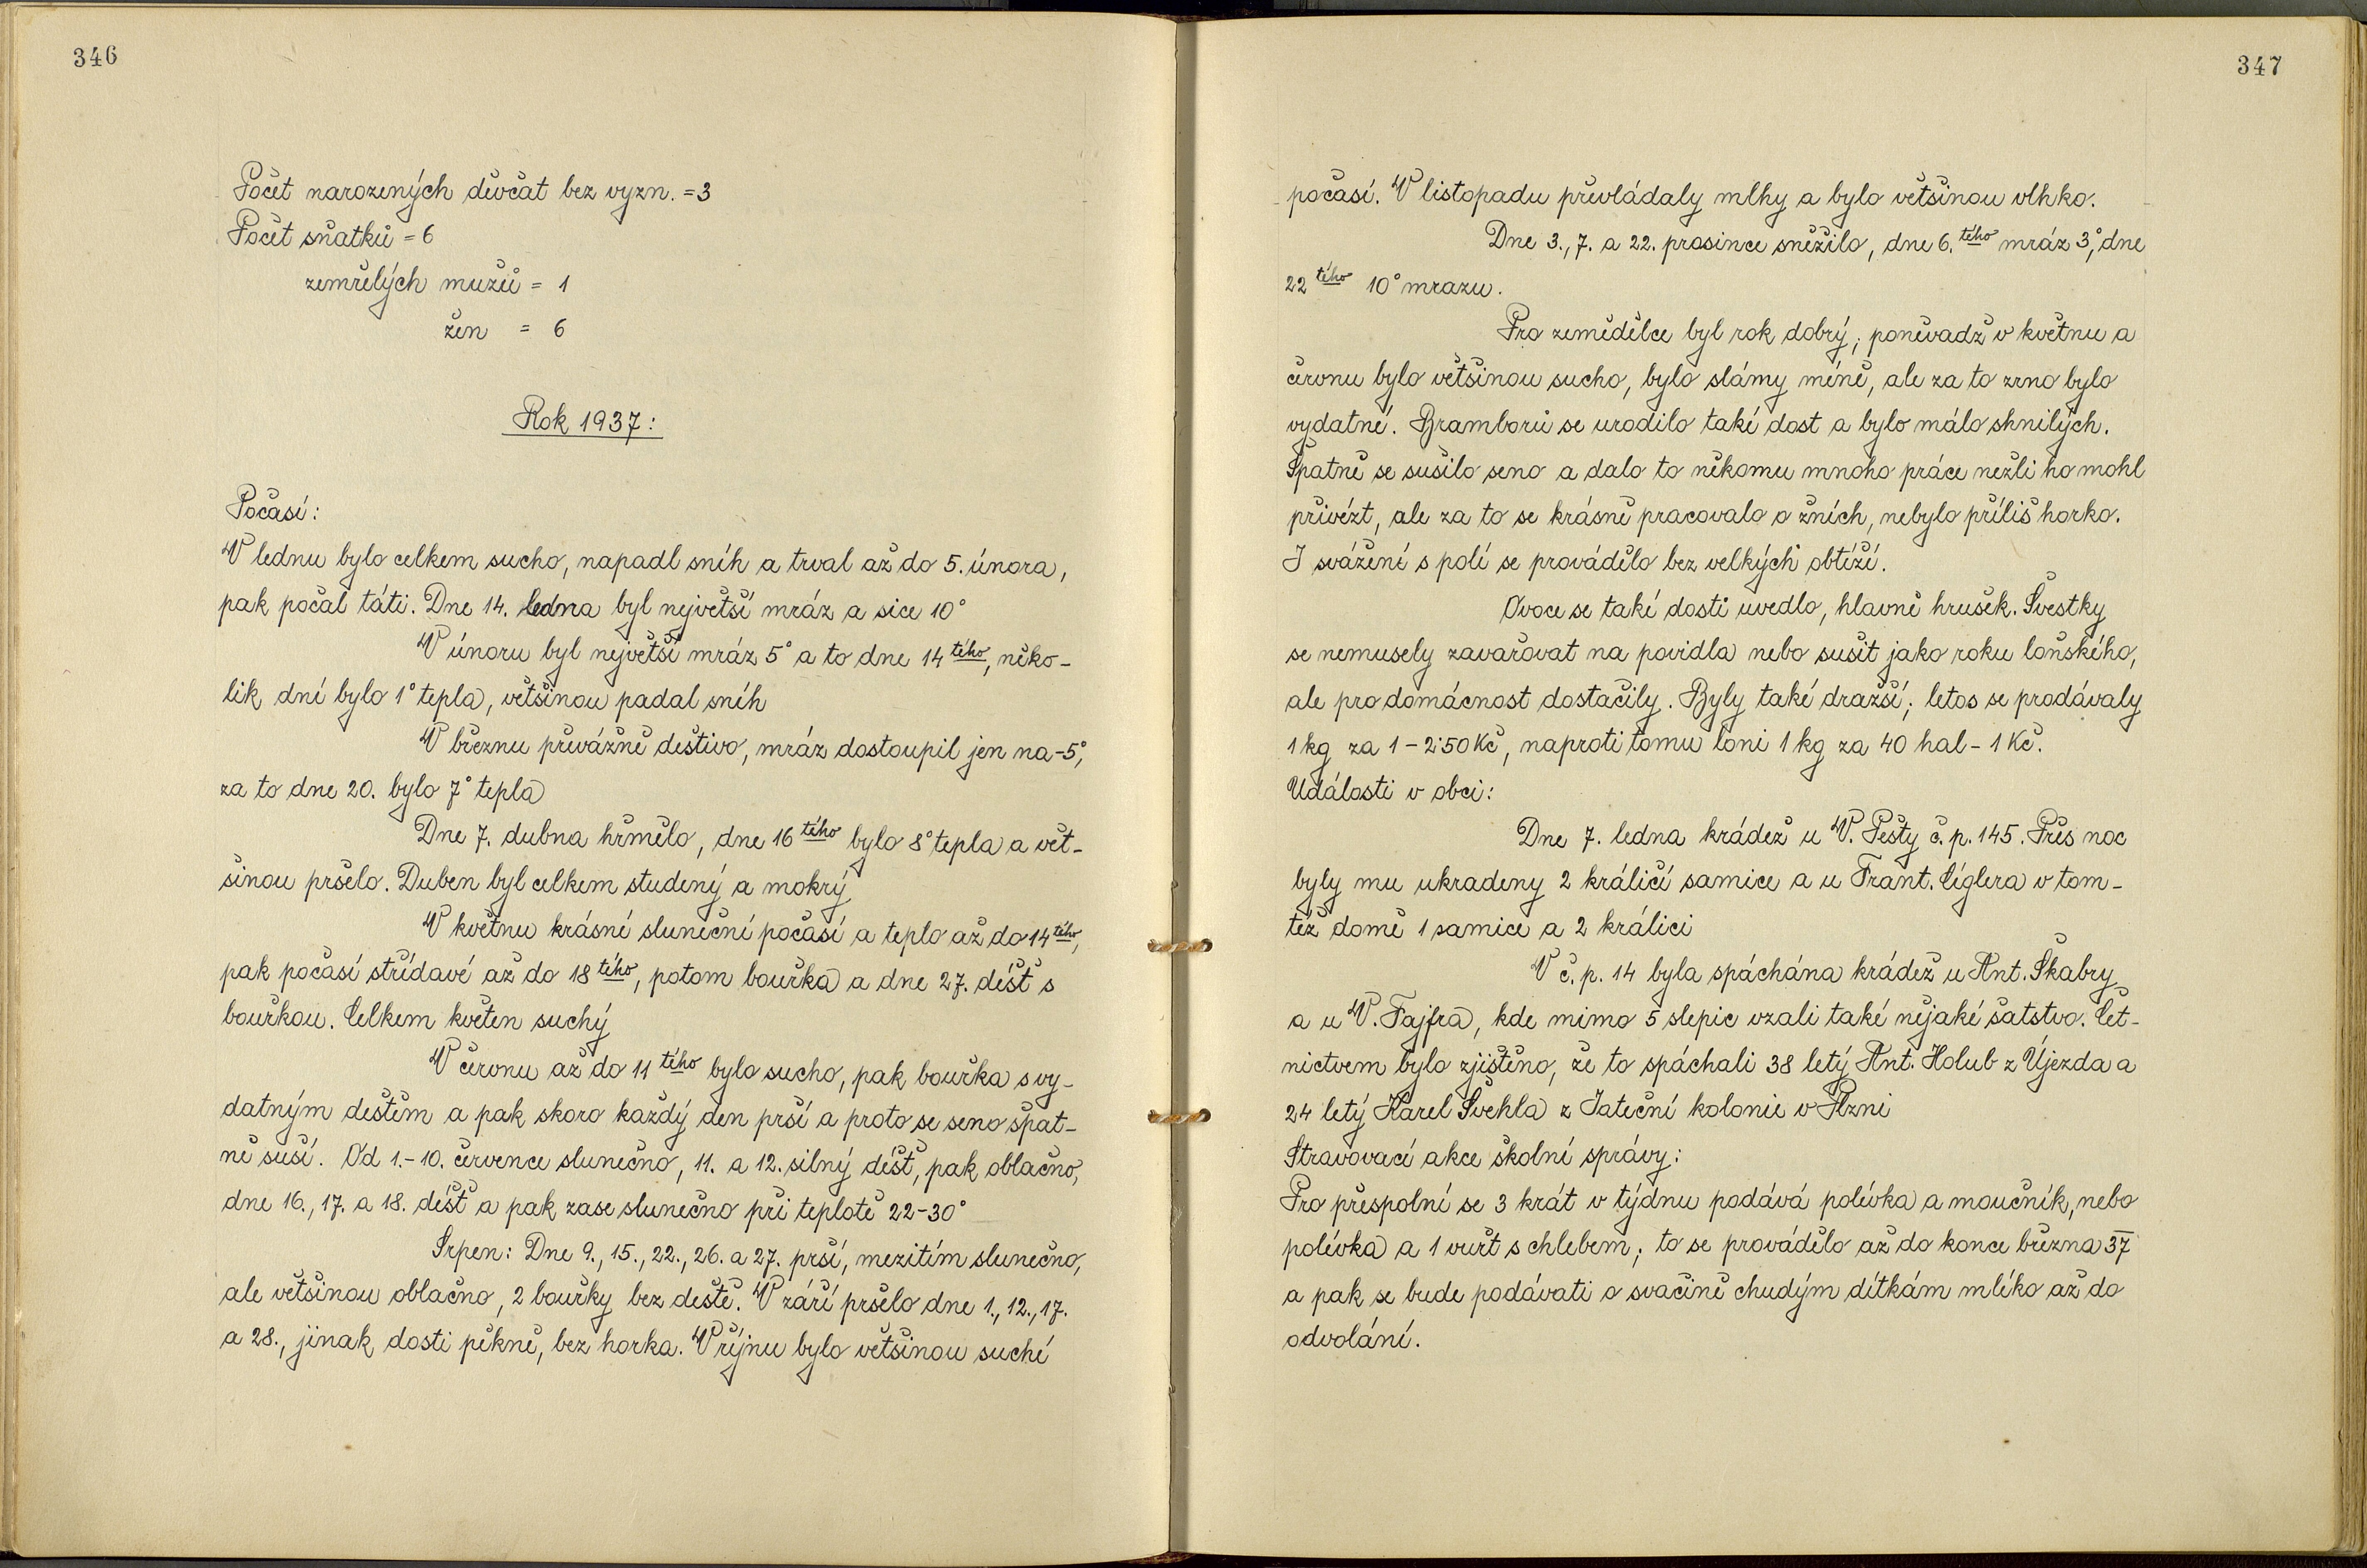 346
Počet narozených děvčat bez vyzn. = 3
Počet sňatků = 6
zemřelých mužů = 1
žen = 6
Rok 1937:
Počasí:
V lednu bylo celkem sucho, napadl sníh a trval až do 5. února,
pak počal táti. Dne 14. ledna byl největší mráz a sice 10°
V únoru byl největší mráz 5° a to dne 14tého, něko-
lik dní bylo 1° tepla, většinou padal sníh
V březnu převážně deštivo, mráz dostoupil jen na -5°,
za to dne 20. bylo 7° tepla
Dne 7. dubna hřmělo, dne 16tého bylo 8° tepla a vět-
šinou pršelo. Duben byl celkem studený a mokrý
V květnu krásné sluneční počasí a teplo až do 14tého,
pak počasí střídavé až do 18tého, potom bouřka a dne 27. déšť s
bouřkou. Celkem květen suchý
V červnu až do 11tého bylo sucho, pak bouřka s vy-
datným deštěm a pak skoro každý den prší a proto se seno špat-
ně suší. Od 1.-10. července slunečno, 11. a 12. silný déšť, pak oblačno,
dne 16., 17. a 18. déšť a pak zase slunečno při teplotě 22-30°
Srpen: Dne 9., 15., 22., 26. a 27. prší, mezitím slunečno,
ale většinou oblačno, 2 bouřky bez deště. V září pršelo dne 1., 12., 17.
a 28., jinak dosti pěkně, bez horka. V říjnu bylo většinou suché
347
počasí. V listopadu převládaly mlhy a bylo většinou vlhko.
Dne 3., 7. a 22. prosince sněžilo, dne 6.tého mráz 3°, dne
22tého 10° mrazu.
Pro zemědělce byl rok dobrý; poněvadž v květnu a
červnu bylo většinou sucho, bylo slámy méně, ale za to zrno bylo
vydatné. Bramborů se urodilo také dost a bylo málo shnilých.
Špatně se sušilo seno a dalo to někomu mnoho práce nežli ho mohl
přivézt, ale za to se krásně pracovalo o žních, nebylo příliš horko.
I svážení s polí se provádělo bez velkých obtíží.
Ovoce se také dosti uvedlo, hlavně hrušek. Švestky
se nemusely zavařovat na povidla nebo sušit jako roku loňského,
ale pro domácnost dostačily. Byly také dražší; letos se prodávaly
1 kg za 1 - 2·50 Kč, naproti tomu loni 1 kg za 40 hal - 1 Kč.
Události v obci:
Dne 7. ledna krádež u V. Pešty č. p. 145. Přes noc
byly mu ukradeny 2 králičí samice a u Frant. Cíglera v tom-
též domě 1 samice a 2 králici
V č. p. 14 byla spáchána krádež u Ant. Škabry
a u V. Fajfra, kde mimo 5 slepic vzali také nějaké šatstvo. Čet-
nictvem bylo zjištěno, že to spáchali 38 letý Ant. Holub z Újezda a
24 letý Karel Švehla z Jateční kolonie v Plzni
Stravovací akce školní správy:
Pro přespolní se 3 krát v týdnu podává polévka a moučník, nebo
polévka a 1 vuřt s chlebem; to se provádělo až do konce března 37
a pak se bude podávati o svačině chudým dítkám mléko až do
odvolání.